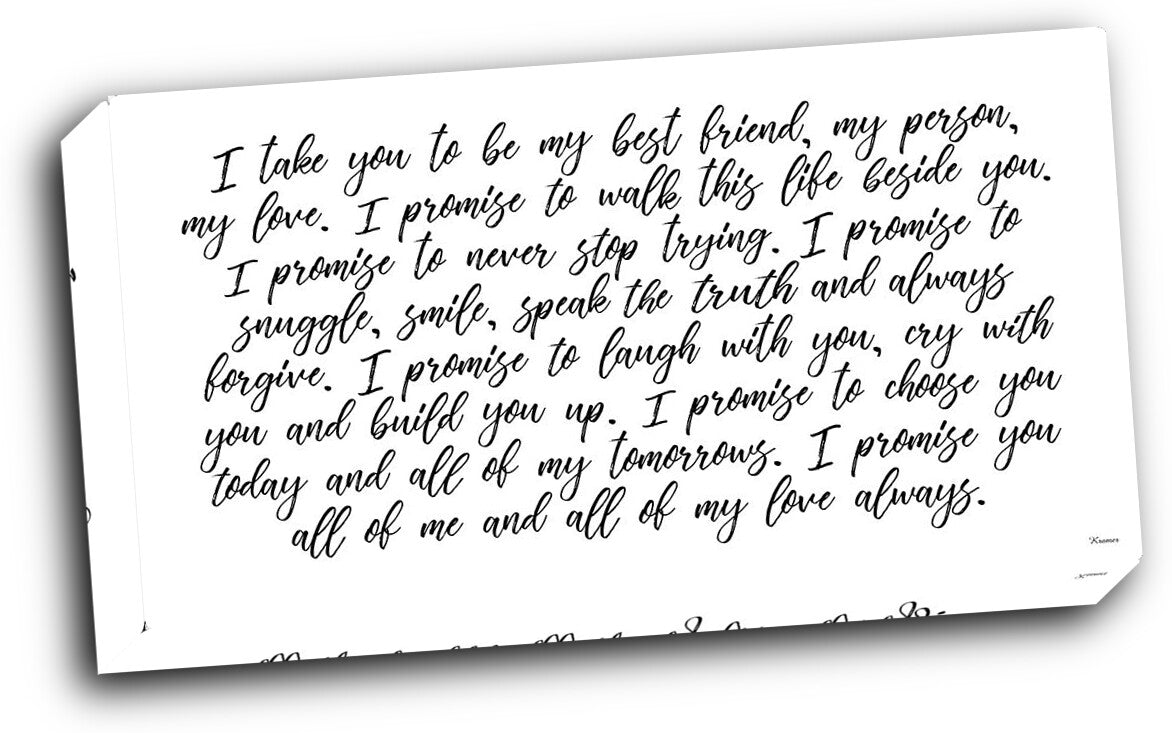 I take you to be my best friend, my person,
my love. I promise to walk this life beside you.
I promise to never stop trying. I promise to
snuggle, smile, speak the truth and always
forgive. I promise to laugh with you, cry with
you and build you up. I promise to choose you
today and all of my tomorrows. I promise you
all of me and all of my love always.
Kramer